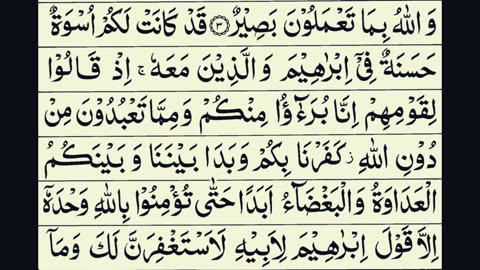 وَ اللّٰهُ بِمَا تَعْمَلُوْنَ بَصِیْرٌ ﴿۳﴾ قَدْ كَانَتْ لَكُمْ اُسْوَةٌ
حَسَنَةٌ فِیْۤ اِبْرٰهِیْمَ وَ الَّذِیْنَ مَعَهٗ ۚ اِذْ قَالُوْا
لِقَوْمِهِمْ اِنَّا بُرَءٰٓؤُا مِنْكُمْ وَ مِمَّا تَعْبُدُوْنَ مِنْ
دُوْنِ اللّٰهِ ؗ كَفَرْنَا بِكُمْ وَ بَدَا بَیْنَنَا وَ بَیْنَكُمُ
الْعَدَاوَةُ وَ الْبَغْضَآءُ اَبَدًا حَتّٰی تُؤْمِنُوْا بِاللّٰهِ وَحْدَهٗۤ
اِلَّا قَوْلَ اِبْرٰهِیْمَ لِاَبِیْهِ لَاَسْتَغْفِرَنَّ لَكَ وَ مَاۤ